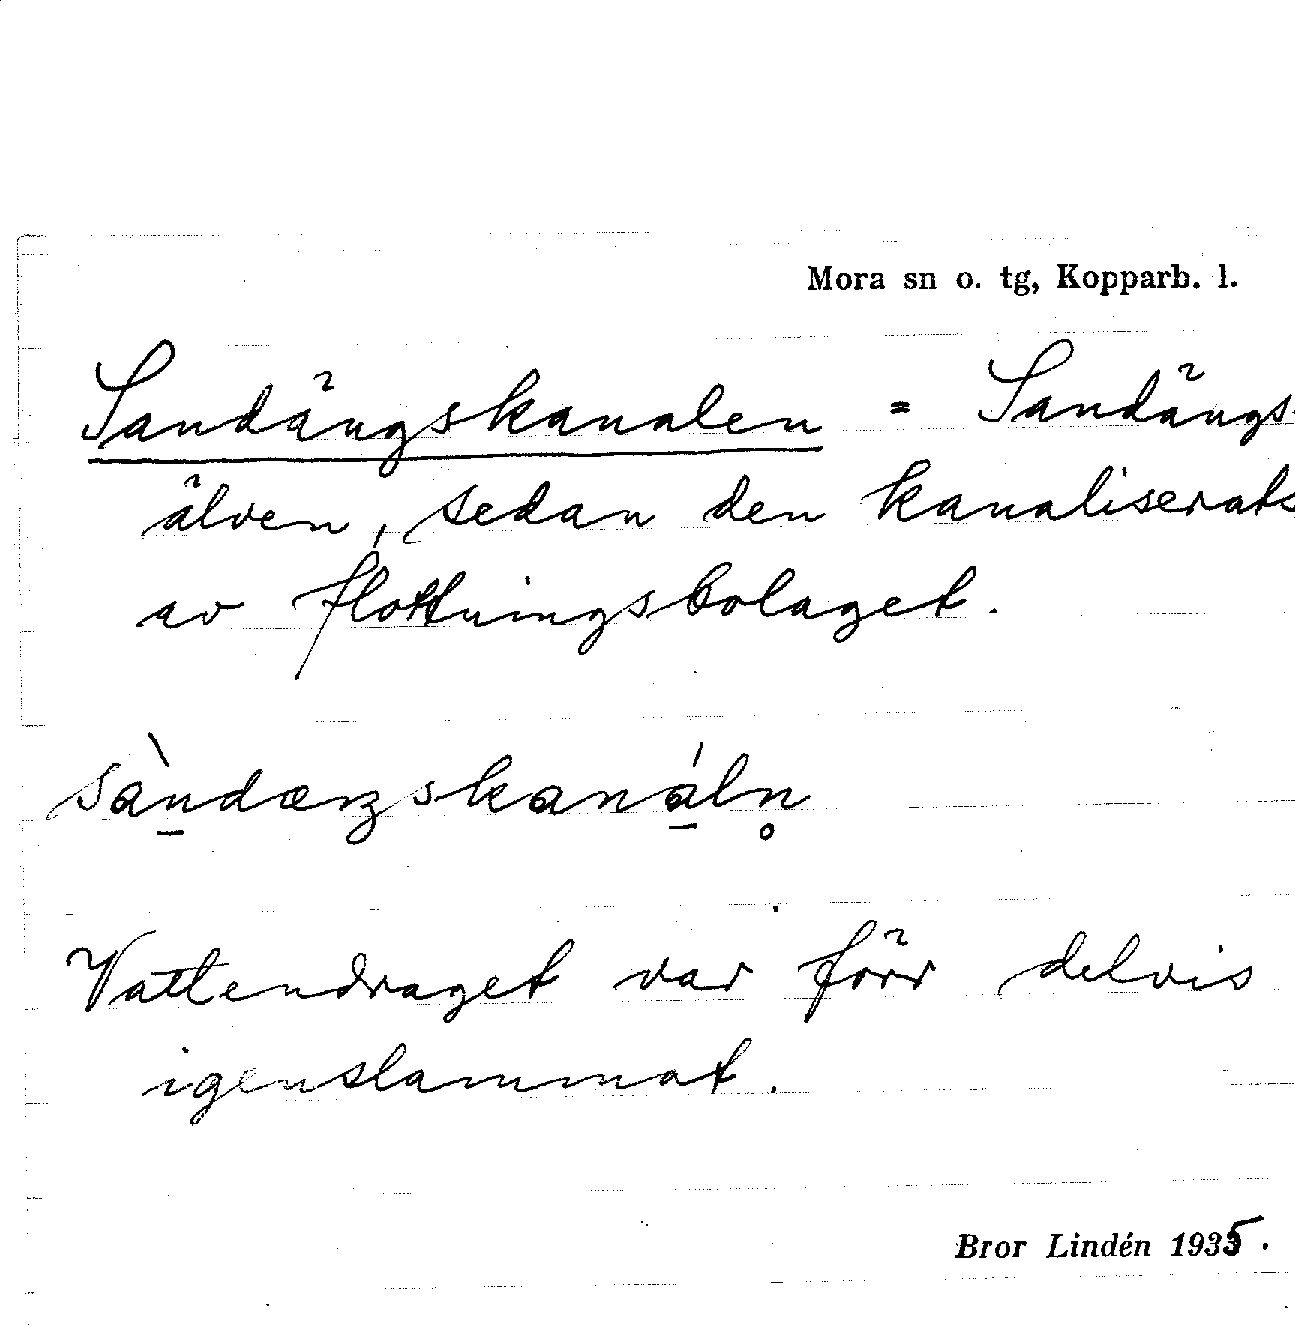 Mora sn o. tg, Kopparb. l.
Sandängskanalen = Sandängs-
älven, sedan den kanaliserats
av flottningsbolaget.
sàndæŋskanáln̥
Vattendraget var förr delvis
igenslammat.
Bror Lindén 1935.